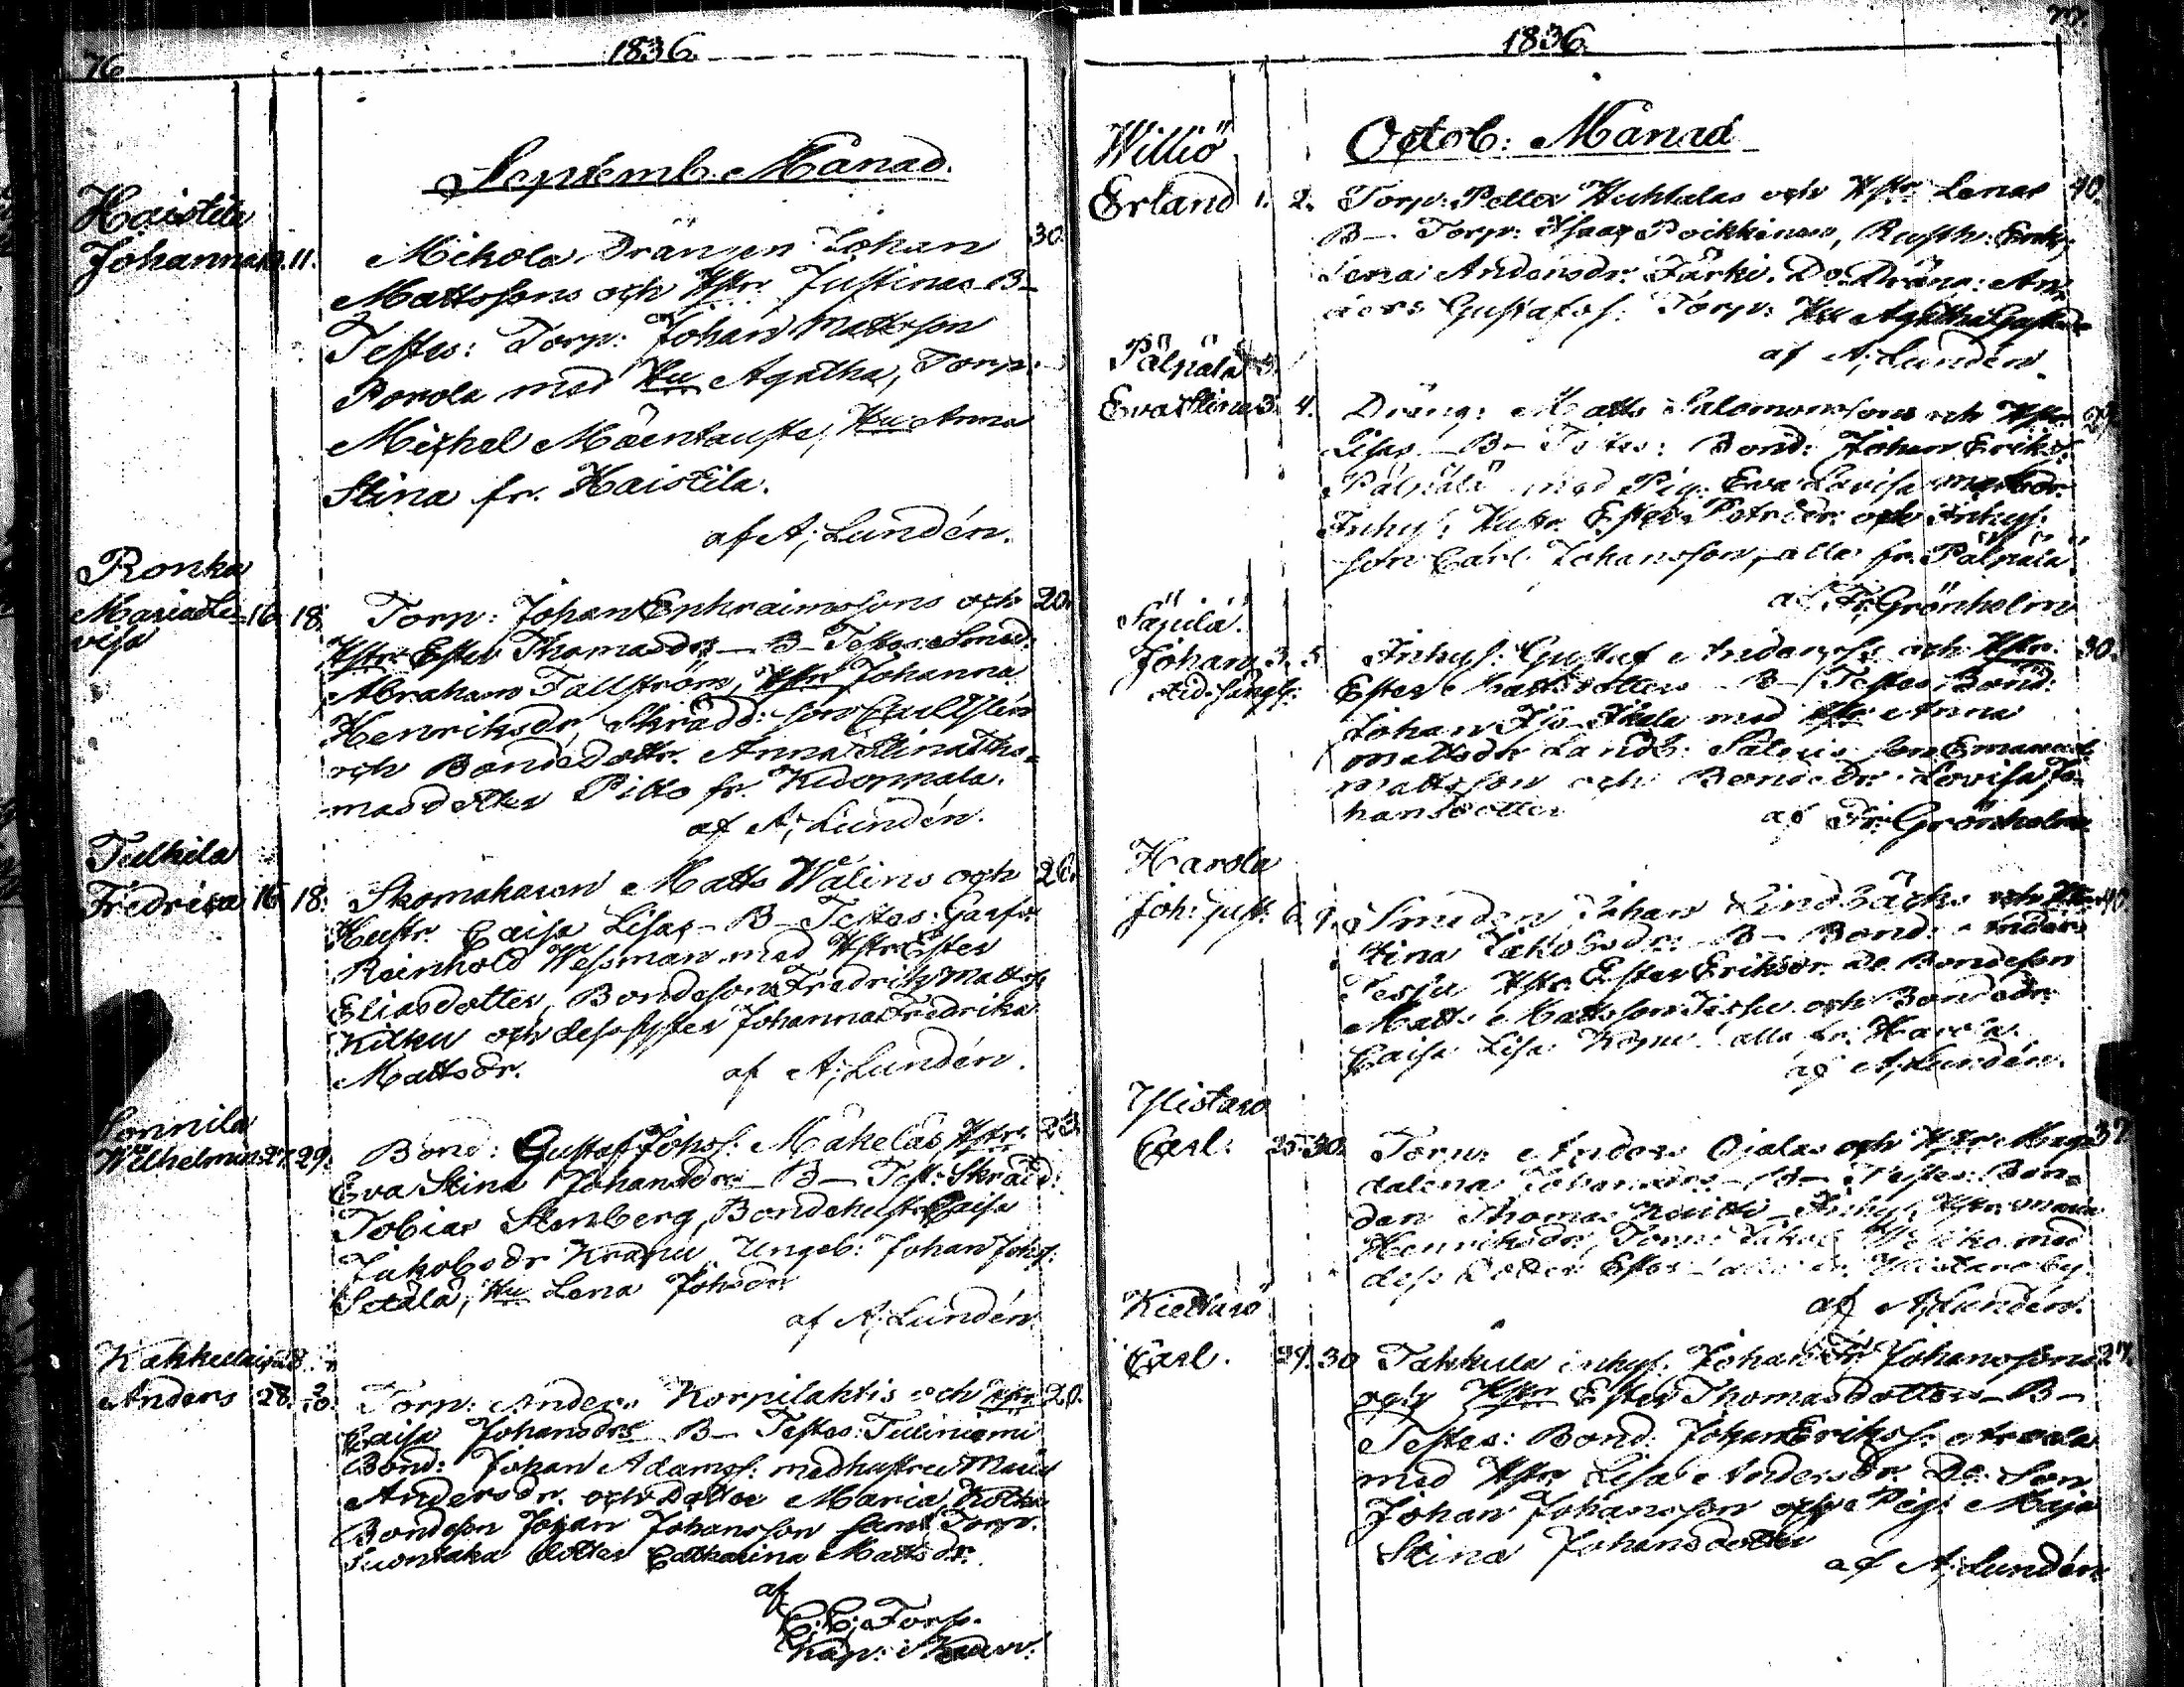 76
1836.
Septemb. Månad.
Haistila
Johanna 10. 11. Mikola Drängen Johan 30.
Mattssons och Hstr. Justinas B-
Testes: Torp: Johan Mattsson
Porola med Hu Agatha, Torp:
Michel Mäentausta, Hu Anna
Stina fr. Haistila.
af A; Lundén.
Ronka
Maria Lo= 16 18. Torp: Johan Ephraimssons och 20.
visa Hstr. Ester Thomasdr. B- Testes: Smed:
Abraham Fallström, Hstr Johanna
Henriksdr, Skrädd: son
och Bondedottr. Anna Stina Tho=
masdotter Pitko fr.
af A; Lundén.
Tulkila
Fredrica 16 18. Skomakaren Matts Walins och 26.
Hustr. Caisa Lisas - B- Testes: Garfv.
Reinhold Wessman med Hstr. Ester
Eliasdotter, Bondeson Fredrik Mattss.
Kilku och dess syster Johanna Fredrika
Mattsdr. af A; Lundén.
Sonnila
Wilhelmina 27. 29. Bond: Gustaf Johss. Mäkeläs, Hstr.
Eva Stina Johansdrs B- Test: Skrädd:
Tobias Stenberg, Bondehustr. Caisa
Jakobsdr Krapu, Ungk: Johan Johss:
Setälä, Hu Lena Johsdr
af A; Lundén.
Kakkulais
Anders 28. Torp: Anders Korpilahtis och Hstr 20.
Caisa Johansdrs B- Testes: Tuliniemi
Bond: Johan Adamss: med hustru Maria
Andersdr. och Dotter Maria,
Bondeson Johan Johansson samt Torp.
dotter Catharina Mattsdr.
af
C: C; Torp.
Kap:
77.
1836.
Octob: Månad
Williö
Erland 1. 2. Torp: Petter Huhtalas och Hstr. Lenas 40.
B- Torp: Isaac Poikkinen, Rusth:
Lena Andersdr. Järki. Do Dräng: An
ders Gustafss: Torp: Hu Agatha
af A; Lundén.
Pälpälä
Eva Stina 3. 4. Dräng: Matts Salomonssons och Hstr.
Lisas B- Testes: Bond: Johan Eriks.
Pälpälä med Pig: Eva Lovisa
Inhys: Hustr. Ester Petridr. och Inhys:
son Carl Johansson, alla fr. Pälpälä
af Fr: Grönholm
Säpilä.
Johan 3. 5. Inhys: Gustaf Anderss: och Hstr: 30.
Ester Mattsdotters B- Testes Bond:
Johan med Hstr Anna
Mattsdr Landb: son Emanuel
Mattsson och Bondedr. Lovisa Jo
hansdotter af Fr: Grönholm
Harola
Joh: Gust: 6. 9. Smeden Johan Lindbäcks och 40.
Stina Jakobsdrs B- Bond: Anders
Tessju Hstr. Ester Eriksdr. Do Bondeson
Matts Mattsson och Bondedr.
Caisa Lisa alla fr. Harola.
af A; Lundén.
Ylistaro
Carl. 25. 30. Torp: Anders Ojalas och Hstr. Magd 37
dalena Johansdrs - B- Testes: Bon=
den Thomas Inhys: Hstr. Maria
Henriksdr, Torp: Jakob med
dess Dotter Ester alla fr. Ylistaro by.
af A; Lundén.
Kiettaro
Carl. 29. 30 Takkula inhys: Johan Johanssons 27.
och Hstr Ester Thomasdotters B-
Testes: Bond: Johan Erikss:
med Hstr Lisa Andersdr. Do Son
Johan Johansson och Pig: Maja
Stina Johansdotter
af A; Lundén